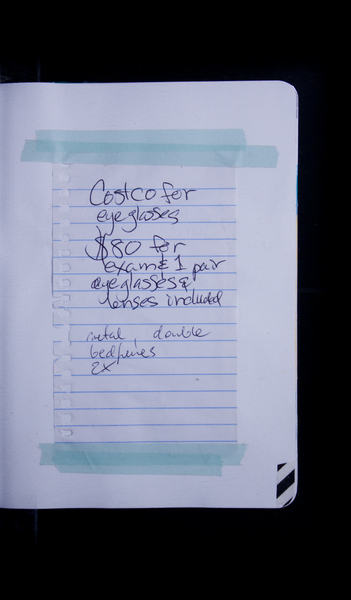 Costco for
eyeglasses
$80 for
exam & 1 pair
eyeglasses &
lenses included
metal, double
bed frames
2x